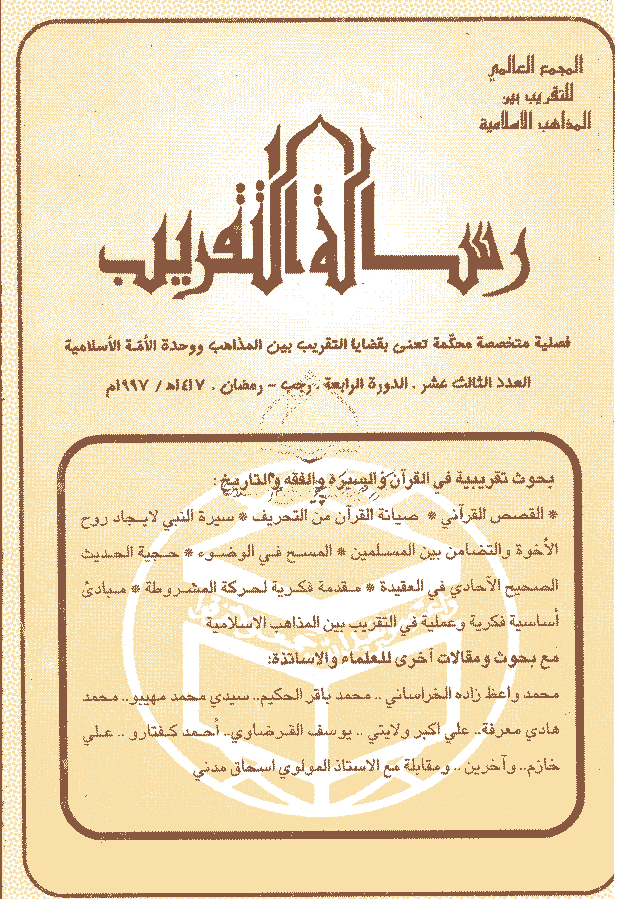 المجمع العالمي
للتقريب بين
المذاهب الاسلامية
رسالة التقريب
فصلية متخصصة محكّمة تعنى بقضايا التقريب بين المذاهب ووحدة الأمّة الأسلامية
العدد الثالث عشر . الدورة الرابعة . رجب - رمضان . ١٤١٧هـ / ١٩٩٧م
بحوث تقريبية في القرآن والسيرة والفقه والتاريخ :
* القصص القرآني * صيانة القرآن من التحريف * سيرة النبي لايجاد روح
الأخوة والتضامن بين المسلمين * المسح في الوضوء * حجية الحديث
الصحيح الآحادي في العقيدة * مقدمة فكرية لحركة المشروطة * مبادئ
أساسية فكرية وعملية في التقريب بين المذاهب الاسلامية
مع بحوث ومقالات أخرى للعلماء والاساتذة:
محمد واعظ زاده الخراساني .. محمد باقر الحكيم.. سيدي محمد مهيبو.. محمد
هادي معرفة.. علي اكبر ولايتي .. يوسف القرضاوي.. أحمد كفتارو .. علي
خازم.. وآخرين .. ومقابلة مع الاستاذ المولوي اسحاق مدني